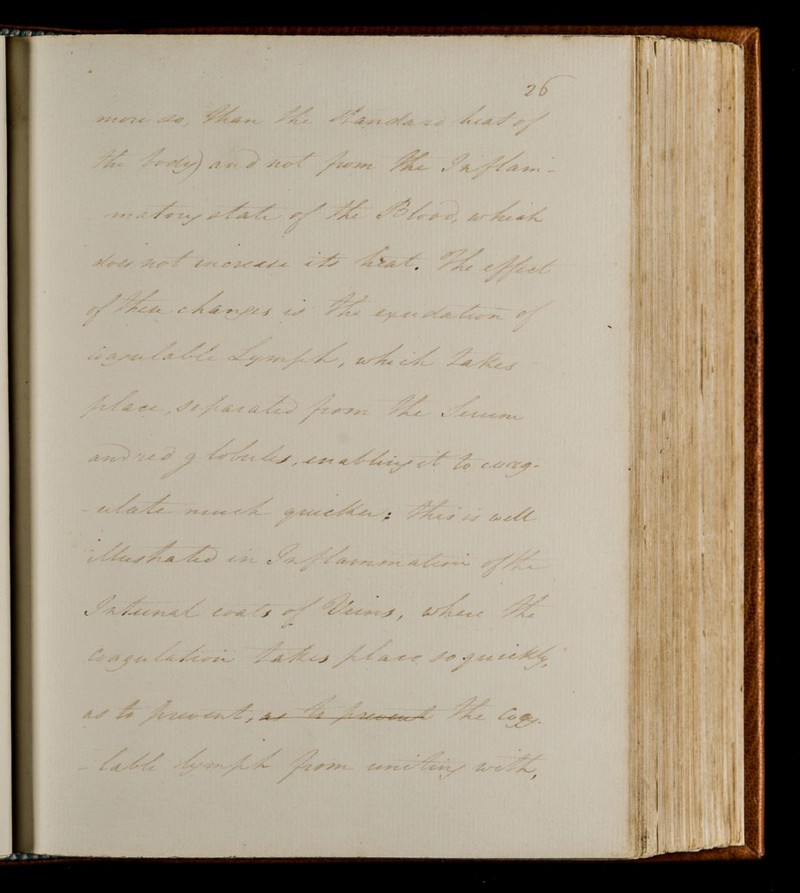 26
more so, than the Standard heat of
the body) and not from the Inflam-
-matory state of the Blood, which
does not increase its heat. The effect
of these changes is the exudation of
coagulable Lymph, which takes
place, separated from the Serum
and red globules, enabling it to coag-
-ulate much quicker; this is well
illustrated in Inflammation of the
Internal coats of Veins, where the
Coagulation takes place so quickly,
as to prevent, as to prevent the Coagu-
-lable lymph from uniting with,